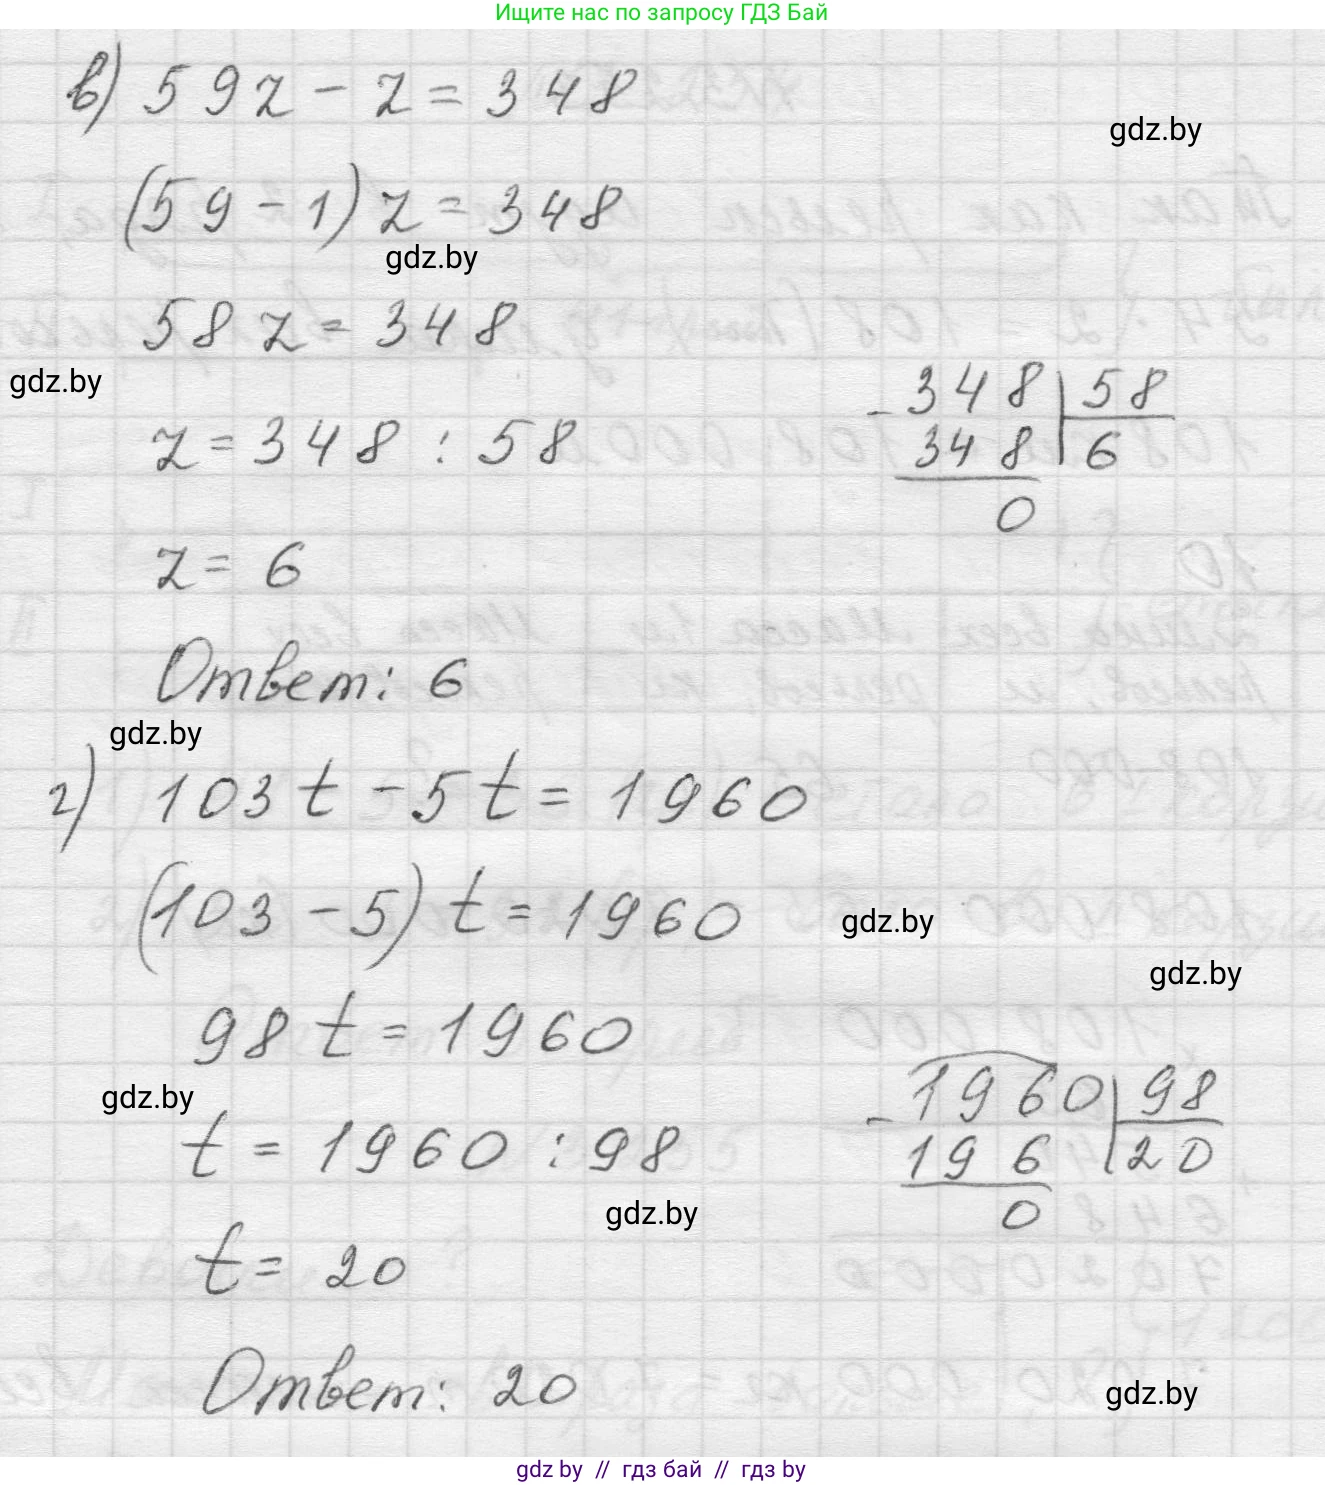 Ищите нас по запросу ГДЗ Бай
в) 59z - z = 348
gdz.by
(59 - 1) z = 348
gdz.by
58 z = 348
gdz.by
z = 348 : 58
- 348 | 58
348 | 6
0
z = 6
Ответ: 6
gdz.by
г) 103 t - 5 t = 1960
(103 - 5) t = 1960
gdz.by
gdz.by
98 t = 1960
gdz.by
t = 1960 : 98
- 1960 | 98
196 | 20
0
gdz.by
t = 20
Ответ: 20
gdz.by
gdz by // гдз бай // гдз by